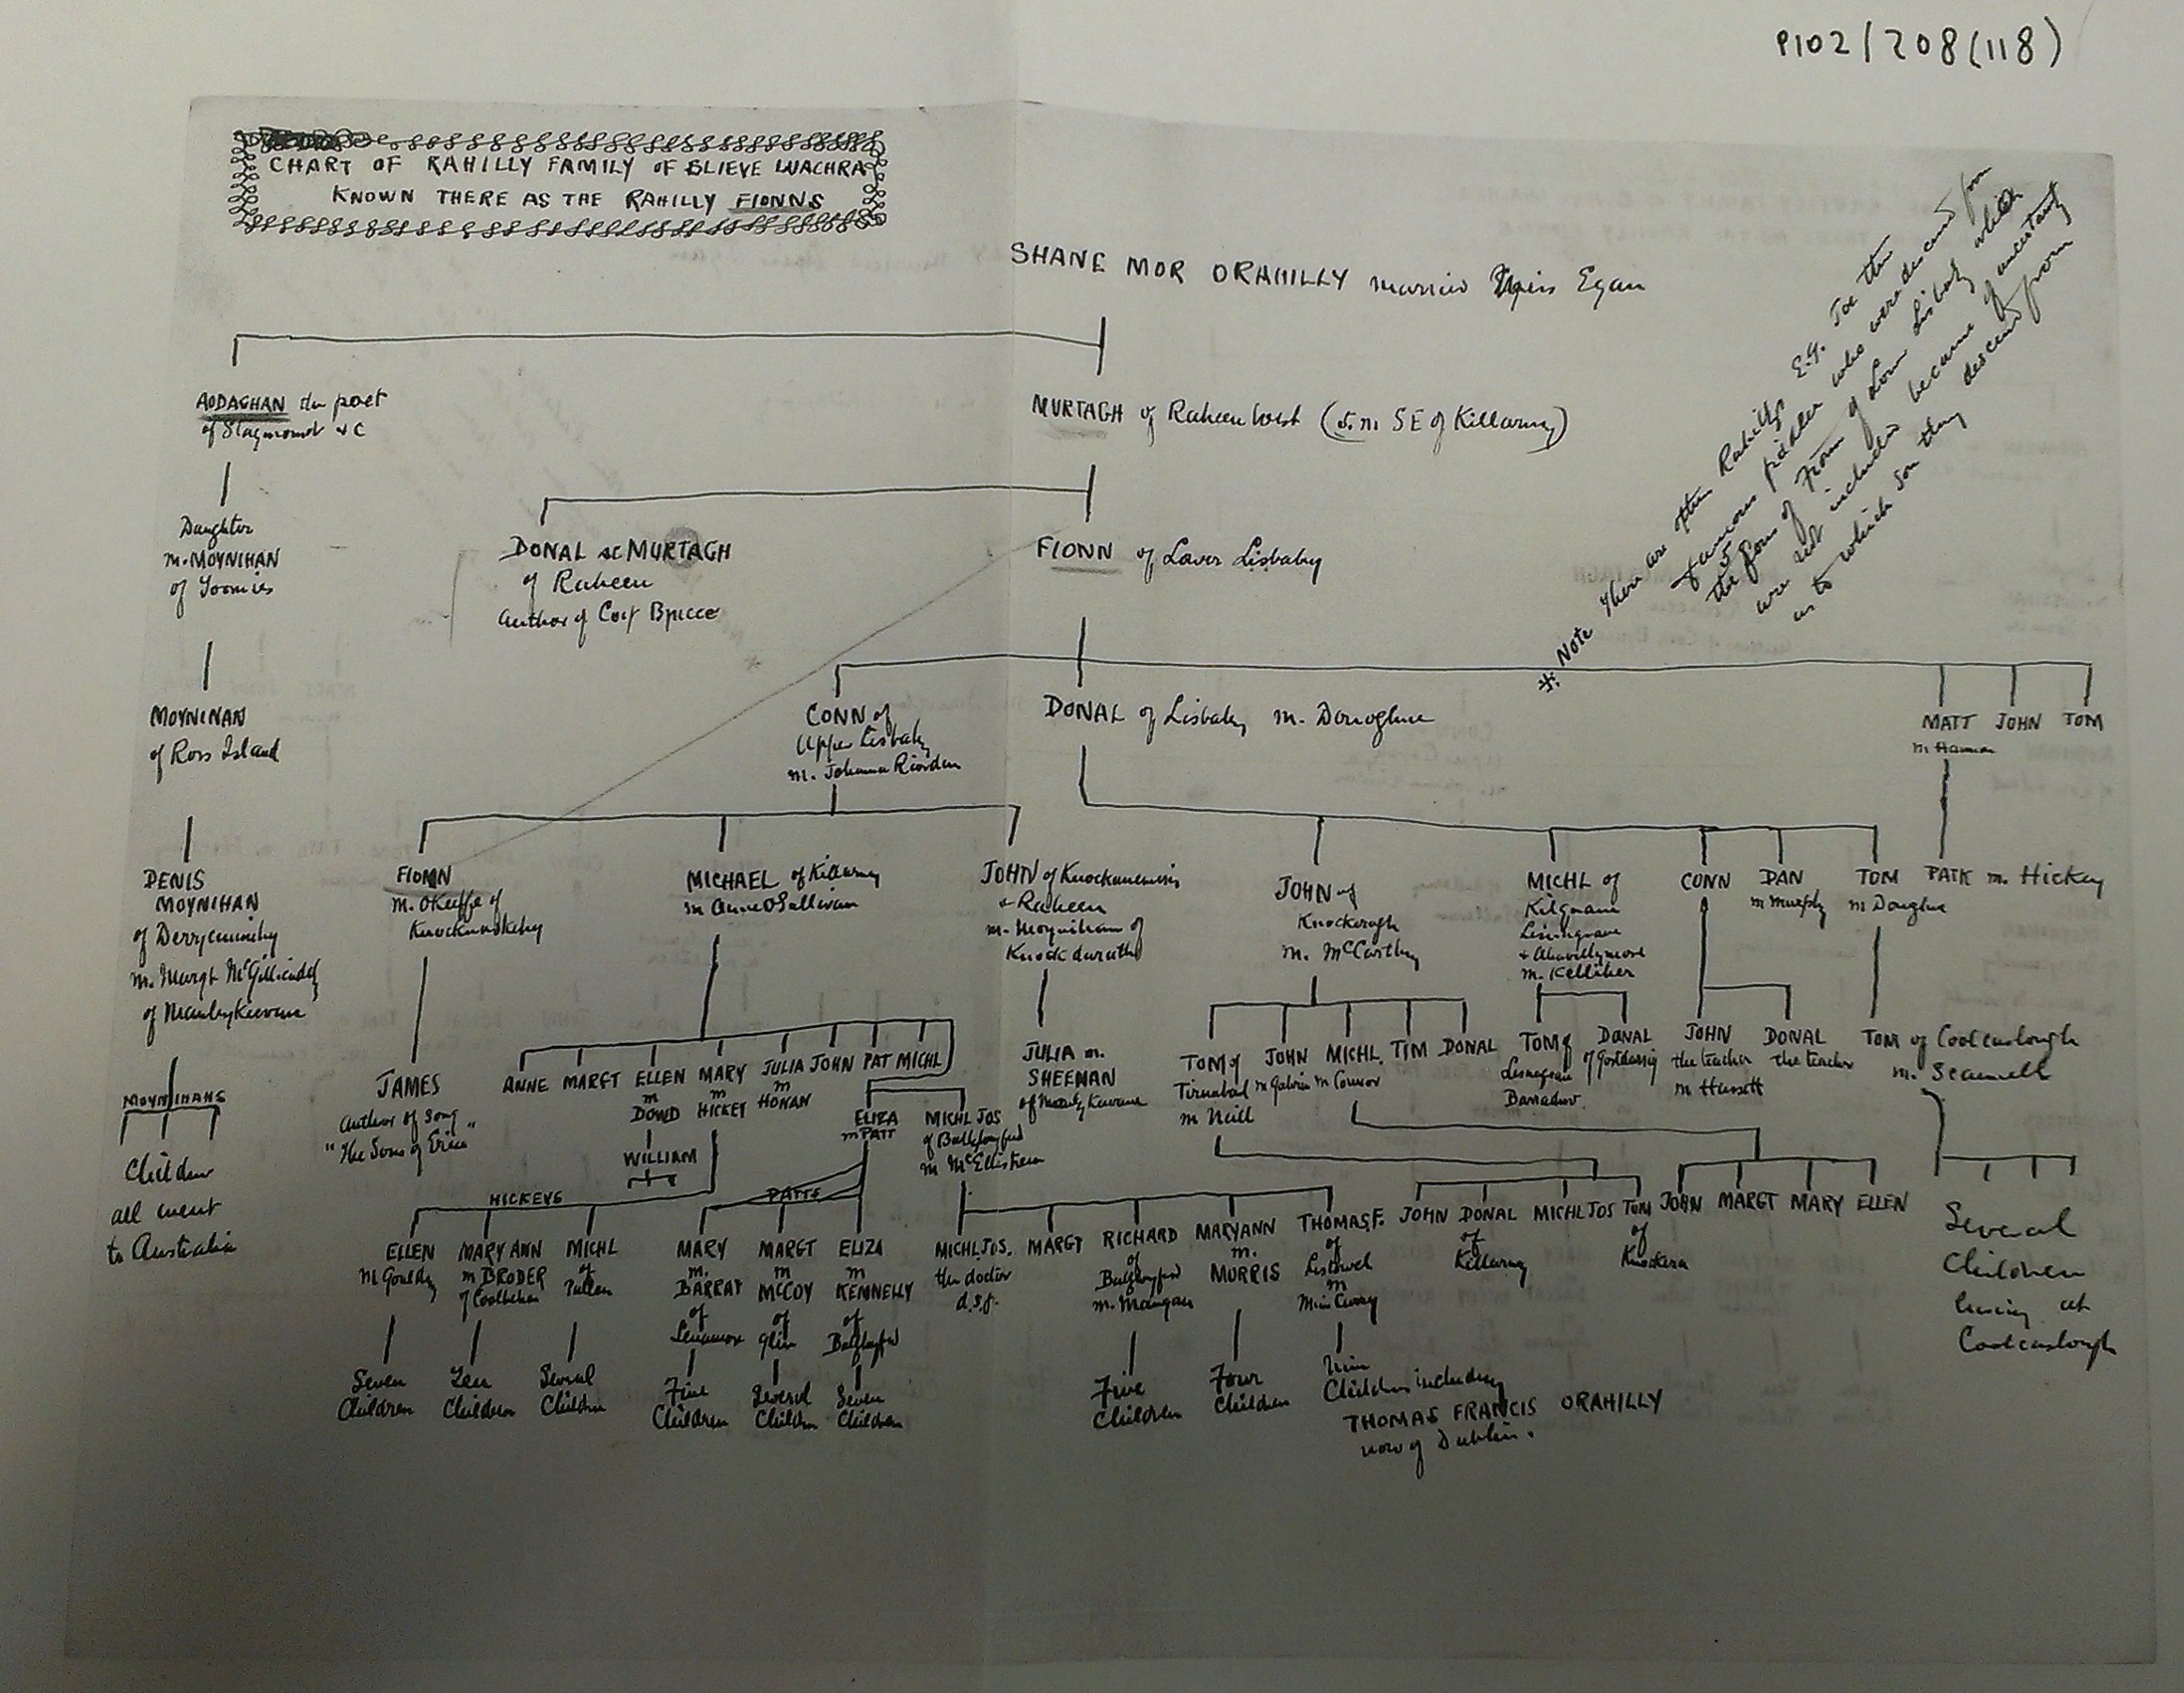 P102/208(118)
CHART OF RAHILLY FAMILY OF SLIEVE LUACHRA
KNOWN THERE AS THE RAHILLY FIONNS
SHANE MOR ORAHILLY married Miss Egan
AODAGHAN the poet
of Stagmount &c
MURTAGH of Raheen West (5.m. SE of Killarney)
* Note There are other Rahillys E.G. Joe the
famous fiddler who were descend from
the 5 sons of Fionn of Lower Lisbaby which
are not included because of uncertainty
as to which son they descend from
Daughter
m. MOYNIHAN
of Toomies
DONAL sc MURTAGH
of Raheen
Author of
FIONN of Lower Lisbaby
MOYNIHAN
of Ross Island
CONN of
Upper Lisbaby
m. Johanna Riordan
DONAL of Lisbaby m. Donoghue
MATT JOHN TOM
m
DENIS
MOYNIHAN
of Derrycunnihy
m. Margt McGillicuddy
of
FIONN
m. OKeeffe of
MICHAEL of Killarney
m Anne OSullivan
JOHN of
& Raheen
m. Moynihan of
JOHN of
m. McCarthy
MICHL of
Kilgnane
m. Kelliher
CONN
DAN
m Murphy
TOM
m Donoghue
PATK m. Hickey
MOYNIHANS
Children
all went
to Australia
JAMES
Author of Song
"The Sons of Erin"
ANNE MARGT ELLEN MARY JULIA JOHN PAT MICHL
m DOWD
m HICKEY
m HONAN
WILLIAM
ELIZA
m PATT
MICHL JOS
of Ballylongford
m McElistrem
JULIA m.
SHEEHAN
of
TOM of
m Neill
JOHN
m Galvin
MICHL.
m Connor
TIM DONAL
TOM of
DONAL
of
JOHN
the teacher
m Hussett
DONAL
the teacher
TOM of Coolcaslough
m. Scannell
HICKEYS
PATTS
ELLEN
m Gouldy
MARY ANN
m BRODER
of
MICHL
of
MARY
m.
BARRAT
of
MARGT
m
McCOY
of
Glin
ELIZA
m
KENNELLY
of
MICHL JOS.
the doctor
d.s.p.
MARGT
RICHARD
of
Ballylongford
m. Mangan
MARYANN
m.
MORRIS
THOMAS F.
of
Listowel
m
Miss Curry
JOHN DONAL
of
Killarney
MICHL JOS
TOM
of
JOHN MARGT MARY ELLEN
Several
Children
living at
Coolcaslough
Seven
Children
Ten
Children
Several
Children
Five
Children
Several
Children
Seven
Children
Five
Children
Four
Children
Nine
Children including
THOMAS FRANCIS ORAHILLY
now of Dublin.